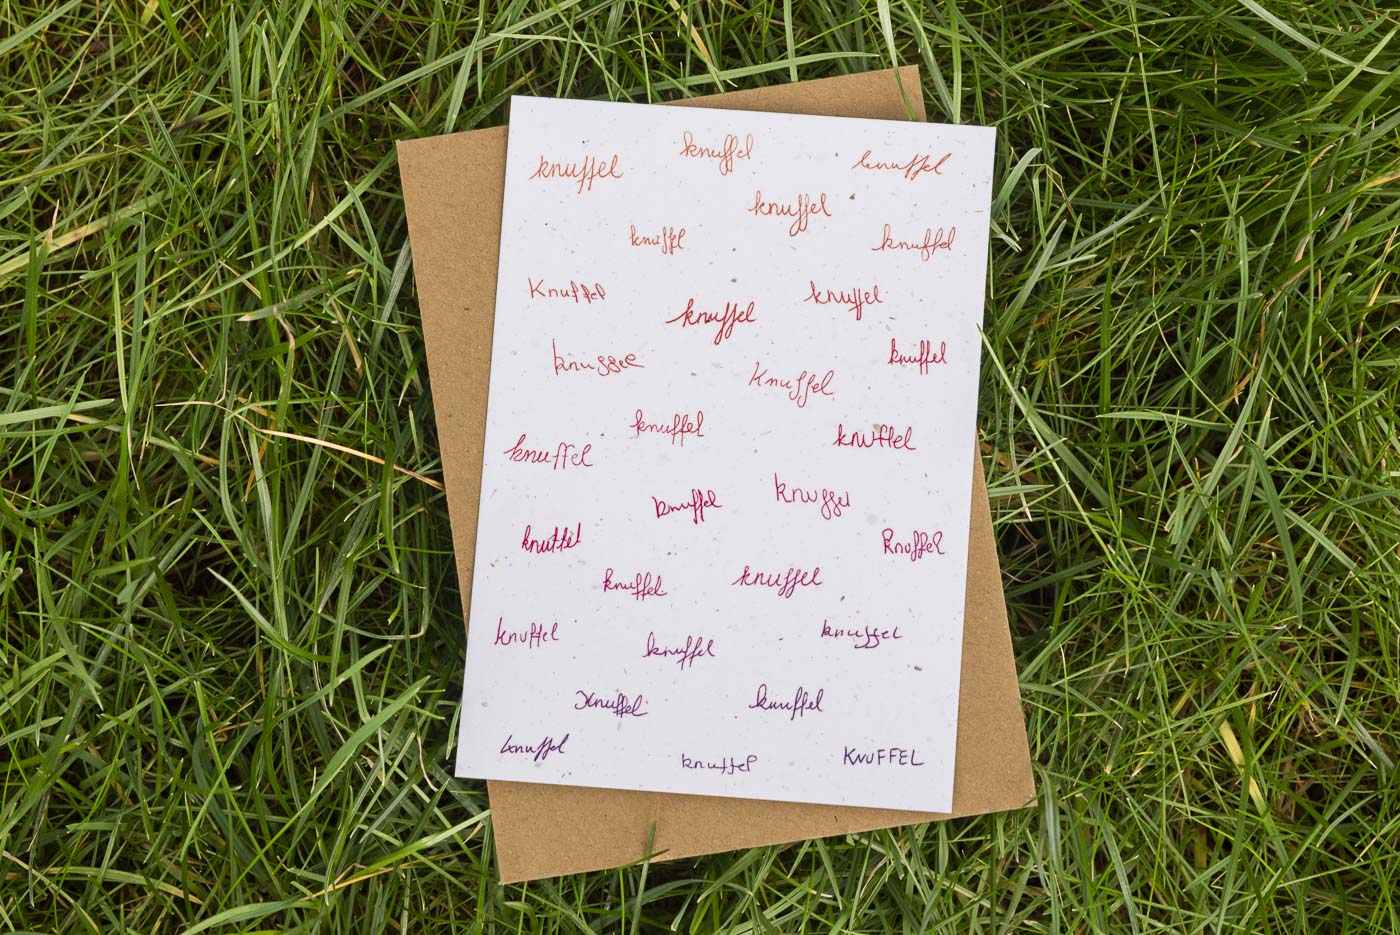 knuffel
knuffel
knuffel
knuffel
knuffel
knuffel
Knuffel
knuffel
knuffel
knuffel
knuffel
Knuffel
knuffel
knuffel
knuffel
knuffel
knuffel
knuffel
Knuffel
knuffel
knuffel
knuffel
knuffel
knuffel
knuffel
knuffel
knuffel
knuffel
KNUFFEL